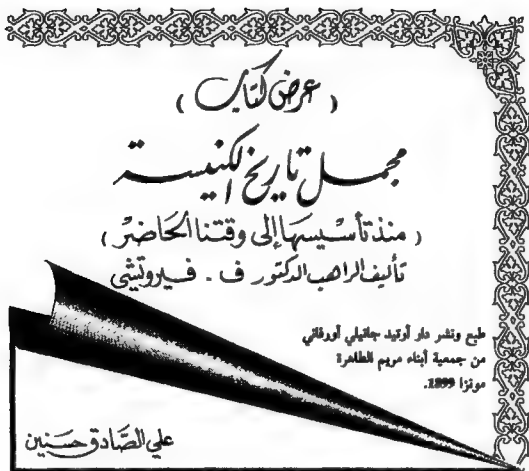 ( عرض كتاب )
مجمل تاريخ الكنيسة
( منذ تأسيسها إلى وقتنا الحاضر )
تأليف الراهب الدكتور ف . فيروتشي
طبع ونشر دار أوتيد جاتيلي أورفاني
من جمعية أبناء مريم الطاهرة
مونزا 1899.
علي الصادق حسنين